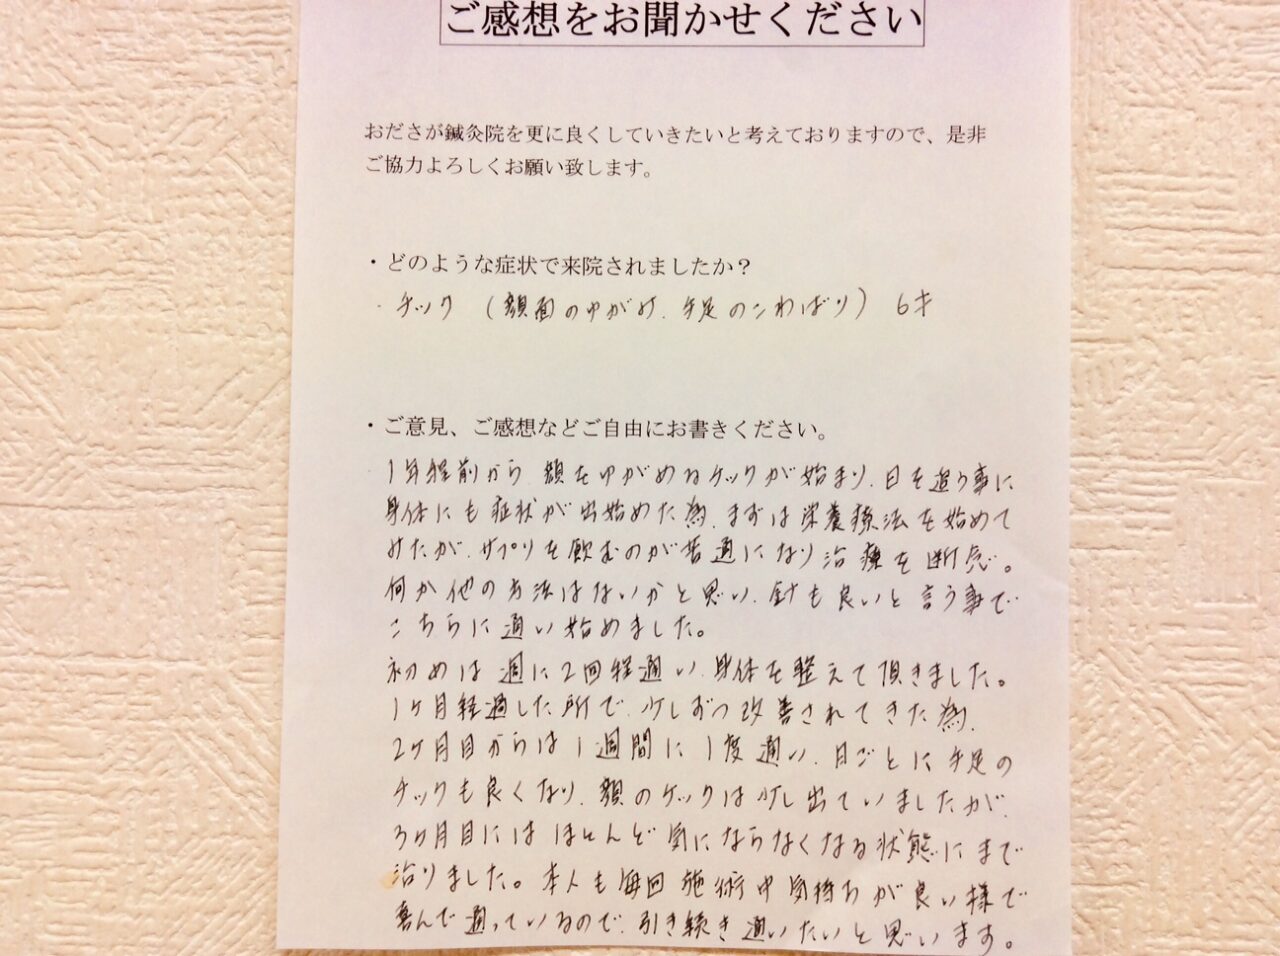 ご感想をお聞かせください
おださが鍼灸院を更に良くしていきたいと考えておりますので、是非
ご協力よろしくお願い致します。
・どのような症状で来院されましたか？
・チック（顔面のゆがみ、手足のこわばり）６才
・ご意見、ご感想などご自由にお書きください。
１年程前から、顔をゆがめるチックが始まり、日を追う事に
身体にも症状が出始めた為、まずは栄養療法を始めて
みたが、サプリを飲むのが苦痛になり治療を断念。
何か他の方法はないかと思い、針も良いと言う事で
こちらに通い始めました。
初めは週に２回程通い、身体を整えて頂きました。
１ヶ月経過した所で、少しずつ改善されてきた為、
２ヶ月目からは１週間に１度通い、日ごとに手足の
チックも良くなり、顔のチックは少し出ていましたが、
３ヶ月目にはほとんど気にならなくなる状態にまで
治りました。本人も毎回施術中気持ちが良い様で
喜んで通っているので、引き続き通いたいと思います。